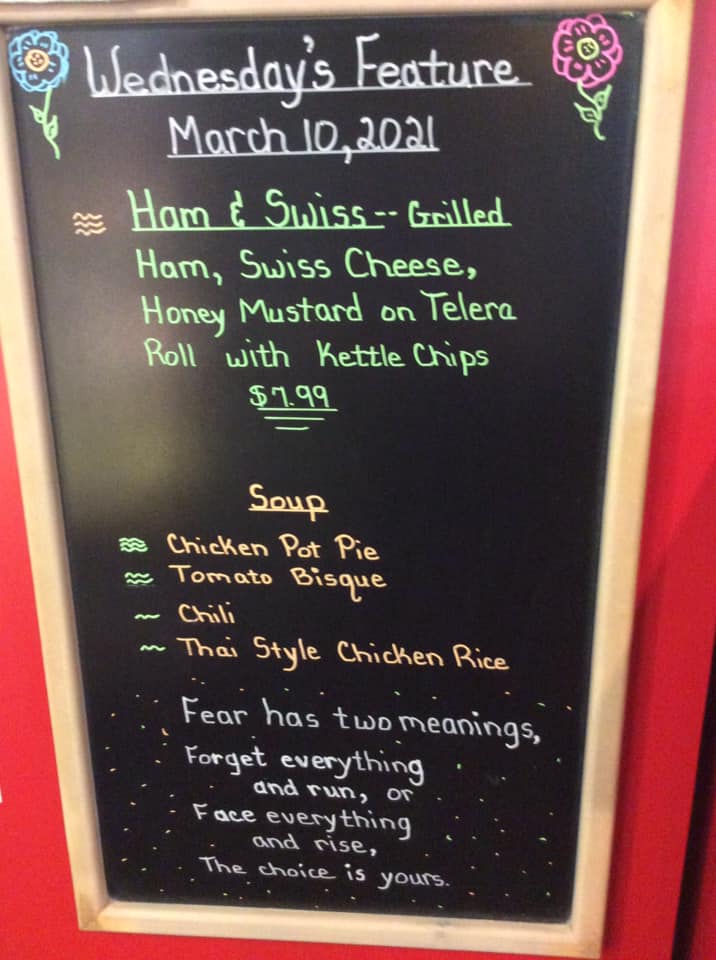 Wednesday's Feature
March 10, 2021
Ham & Swiss -- Grilled
Ham, Swiss Cheese,
Honey Mustard on Telera
Roll with Kettle Chips
$7.99
Soup
Chicken Pot Pie
Tomato Bisque
Chili
Thai Style Chicken Rice
Fear has two meanings,
Forget everything
and run, or
Face everything
and rise,
The choice is yours.